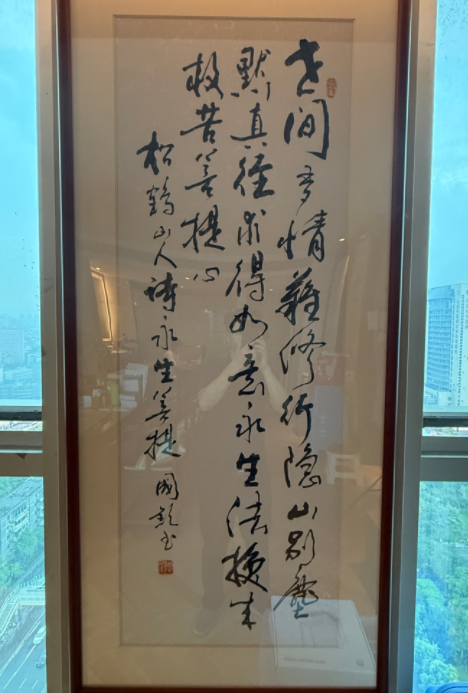 世间多情难修行隐山别尘
默真径求得如意永生法换来
救苦菩提心
松鹤山人诗永生菩提 國彭书